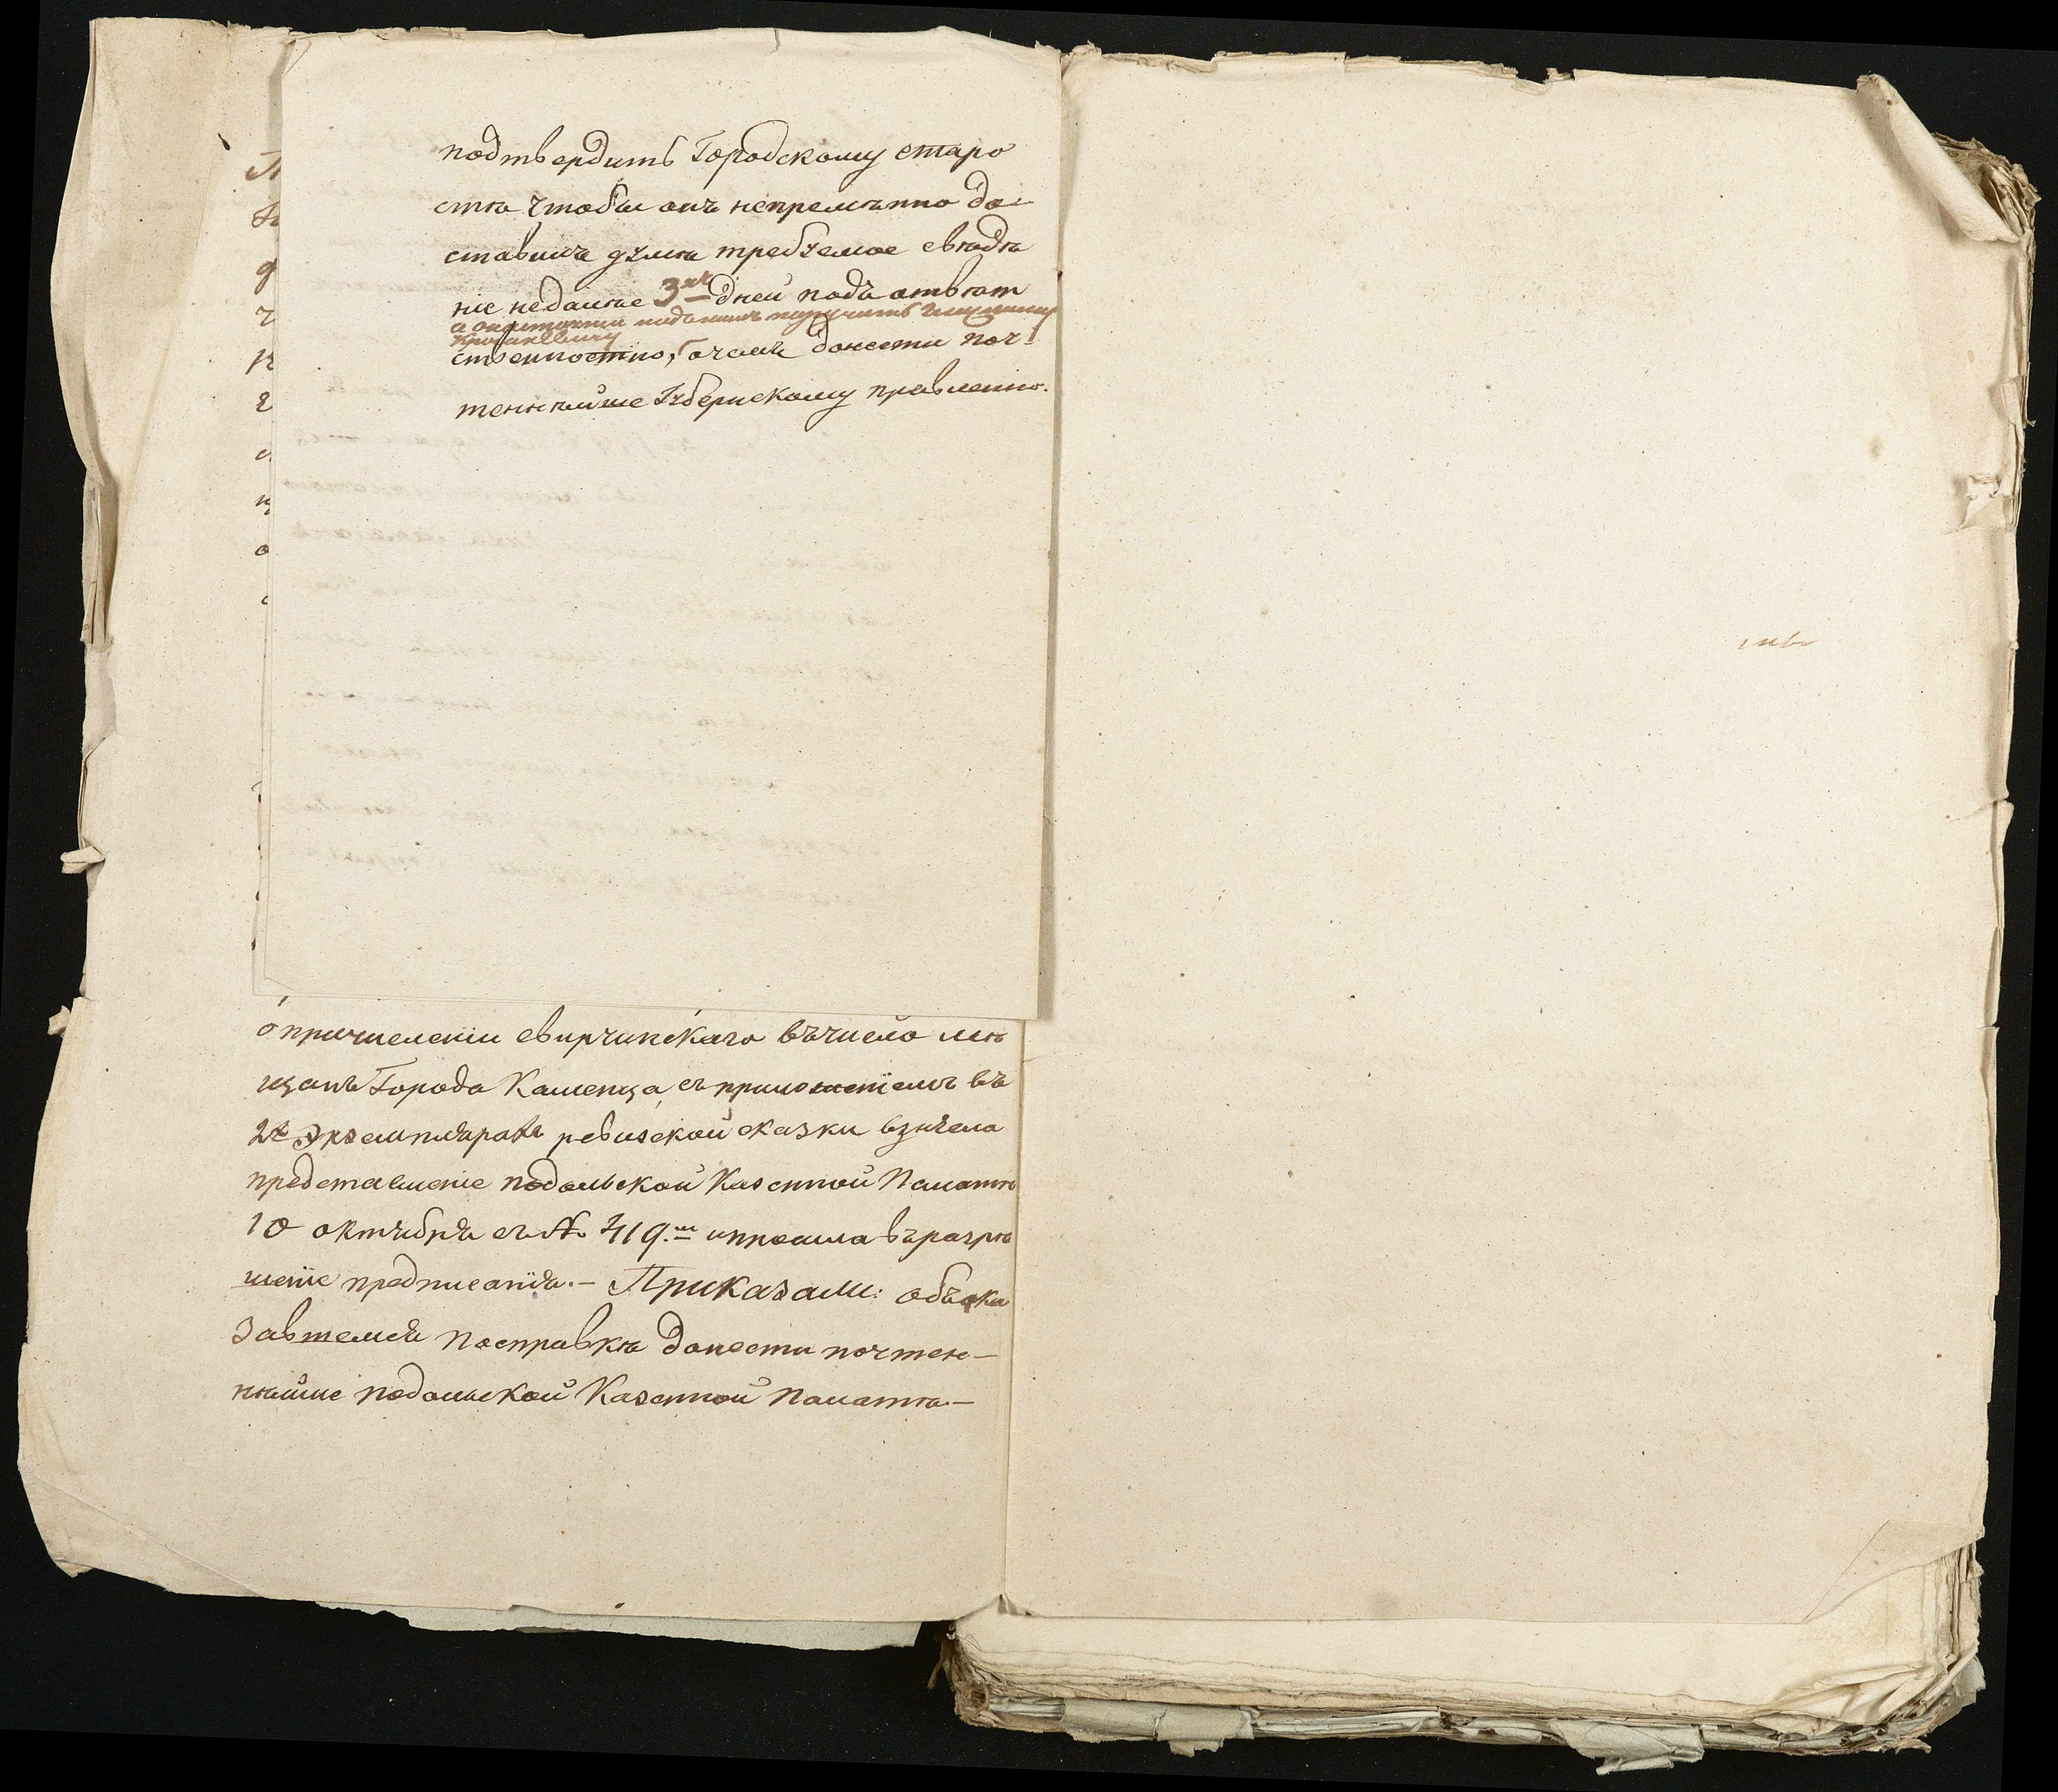 подтвердить Городскому старо
стѣ чтобы онъ непремѣнно до-
ставилъ думѣ требуемое свѣдѣ
ніе недалѣе 3хъ дней подъ отвѣт
ственностію, о чемъ донести поч-
теннѣйше Губернскому правленію.
о причисленіи свирчинскаго въ число мѣ
щанъ Города Каменца, съ приложеніемъ въ
2х Экземплярахъ ревизской сказки
представленіе подольской Казенной Палатѣ
10 октября съ № 419.м и просила въ разрѣ
шеніе предписанія.— Приказали: объ ока
завшемся по справкѣ донести почтен—
нѣйше подольской Казенной Палатѣ.—